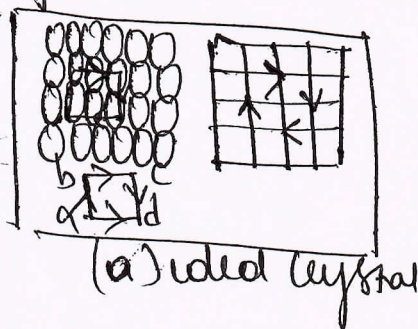 b c
a d
(a) ideal Crystal